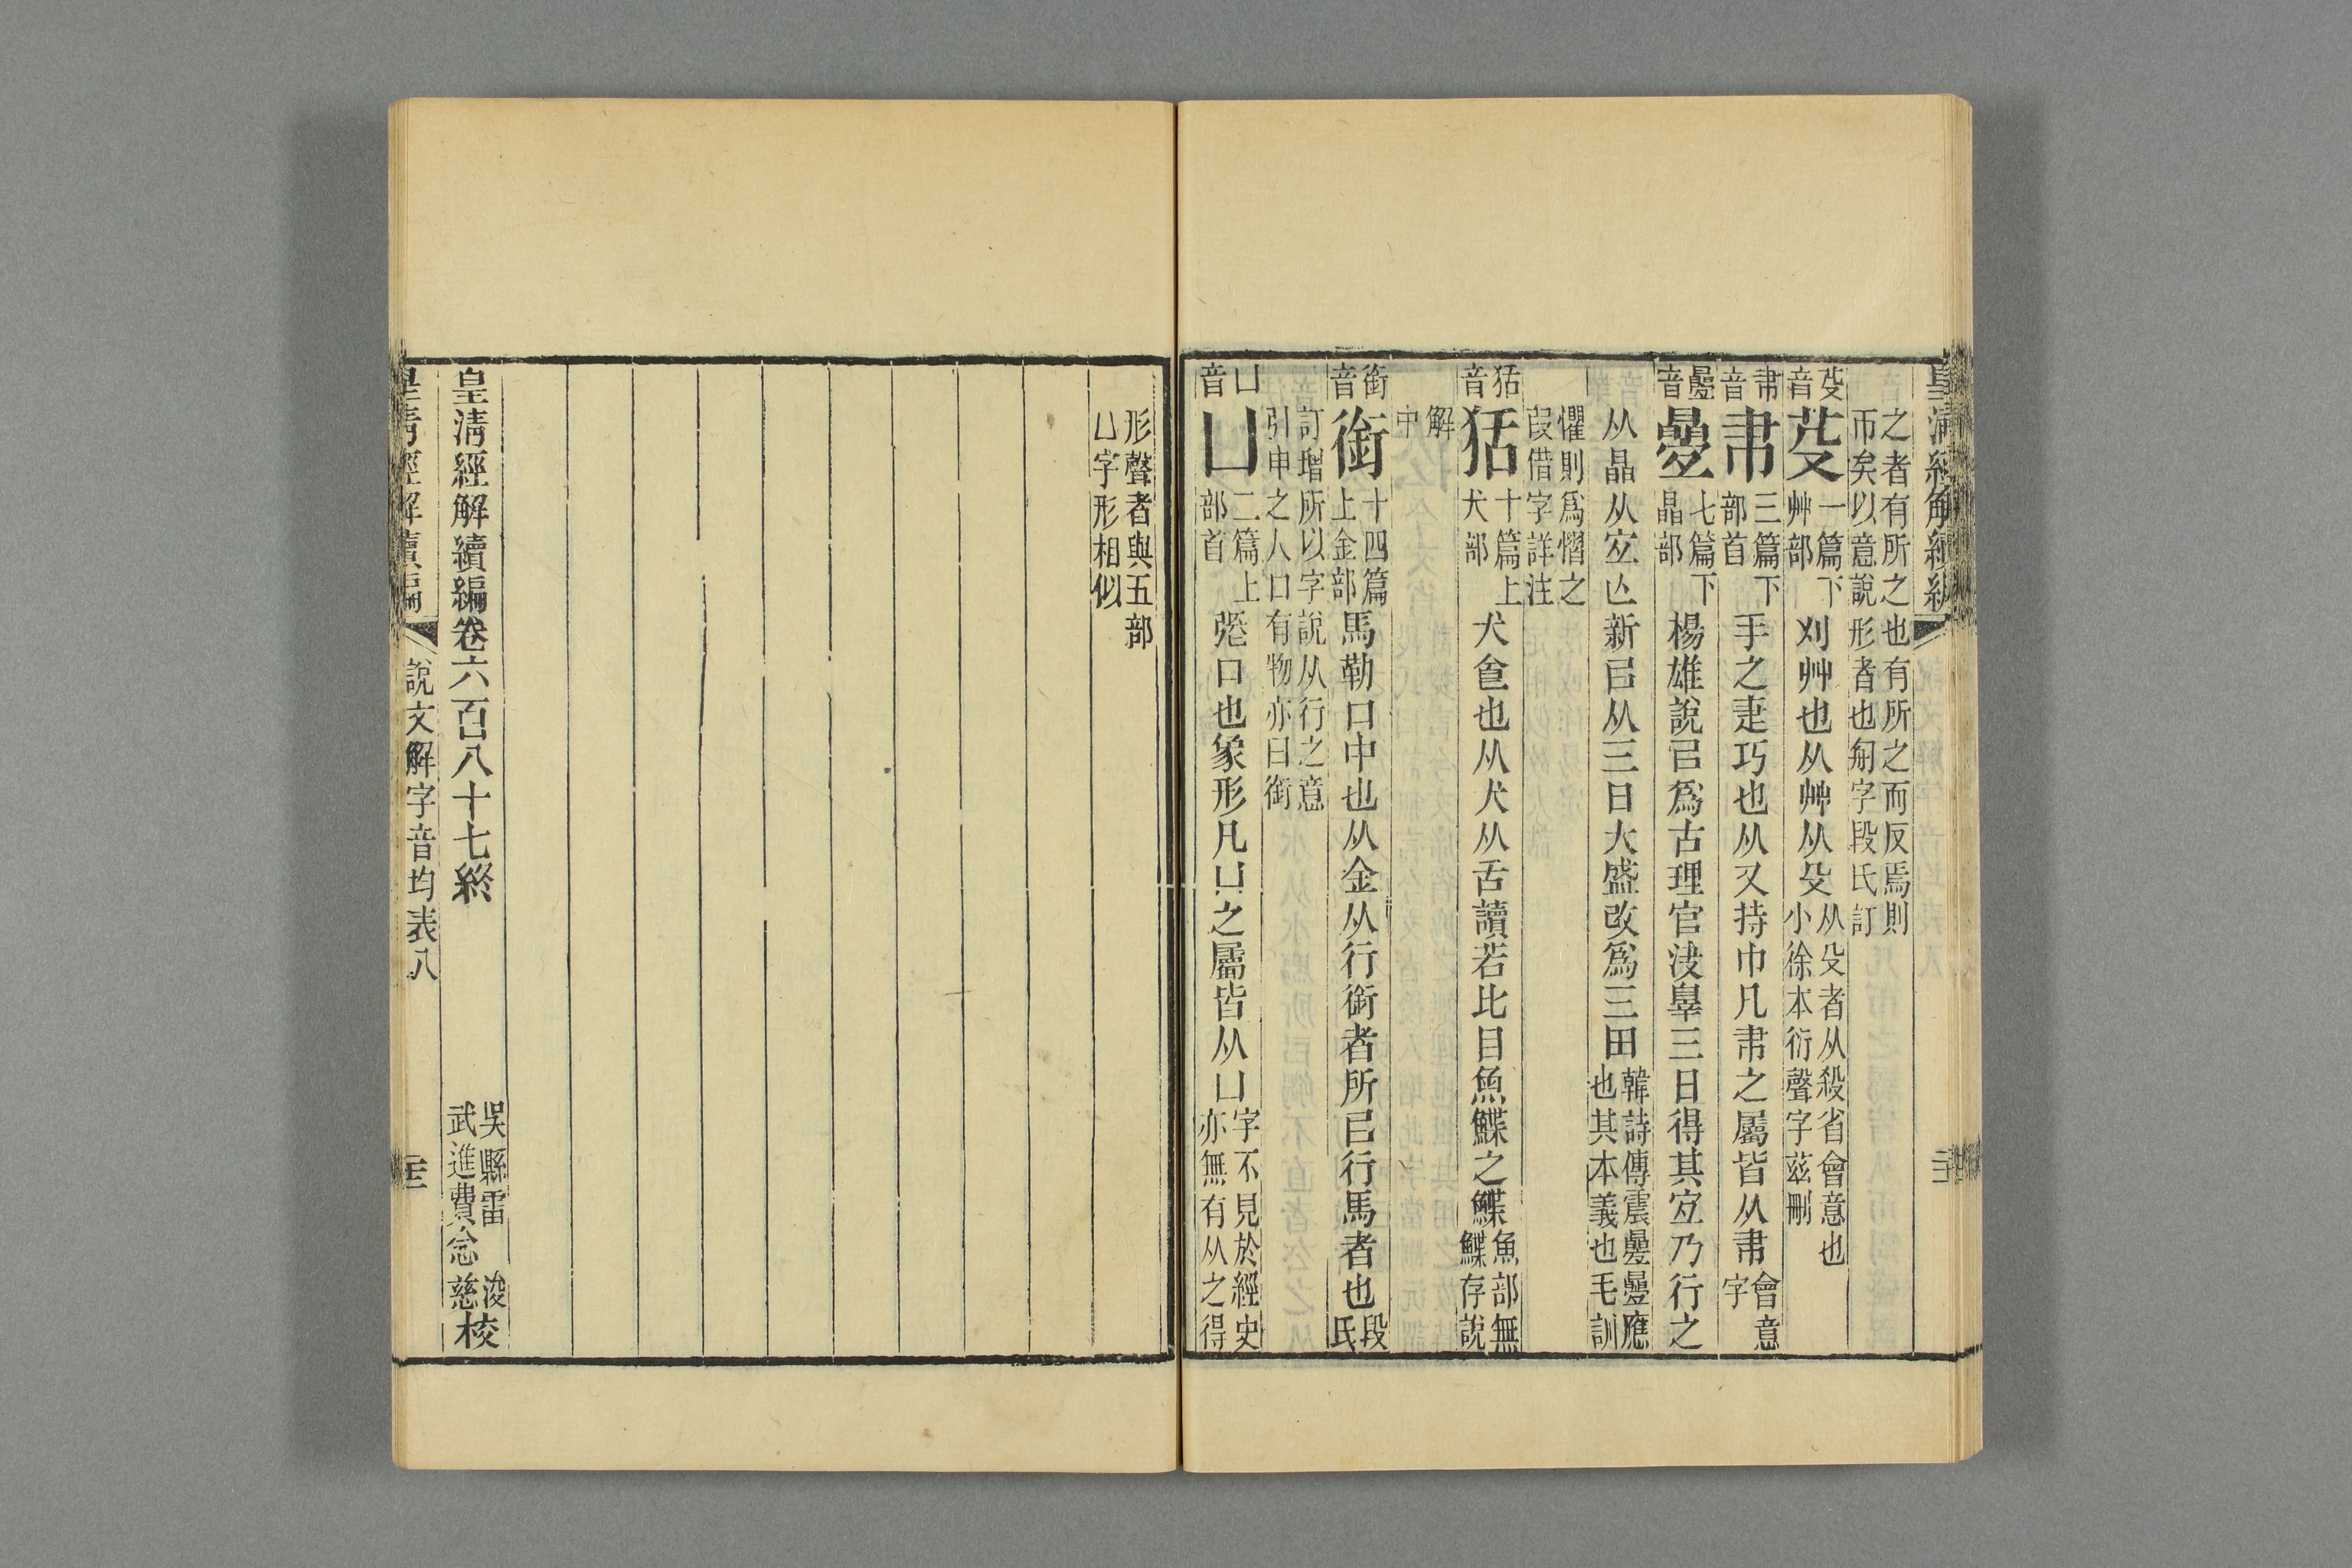 皇清經解續編
之者有所之也有所之而反焉則
帀矣以意說形者也匊字段氏訂
芟音 芟 一篇下艸部 刈艸也从艸从殳 从殳者从殺省會意也小徐本衍聲字茲刪
帇音 帇 三篇下部首 手之疌巧也从又持巾凡帇之屬皆从帇 會意字
疊音 疊 七篇下晶部 楊雄說㠯爲古理官決辠三日得其宐乃行之
从晶从宐亾新㠯从三日大盛改爲三田 韓詩傳震疊疊應也其本義也毛訓
懼則爲慴之叚借字詳注
狧音 狧 十篇上犬部 犬㿽也从犬从舌讀若比目魚鰈之鰈 魚部無鰈存說
解中
銜音 銜 十四篇上金部 馬勒口中也从金从行銜者所㠯行馬者也 段氏
訂增所以字說从行之意引申之人口有物亦曰銜
凵音 凵 二篇上部首 張口也象形凡凵之屬皆从凵 字不見於經史亦無有从之得
形聲者與五部凵字形相似
皇清經解續編卷六百八十七終 吳縣雷浚 武進費念慈 校
皇清經解續編 說文解字音均表八